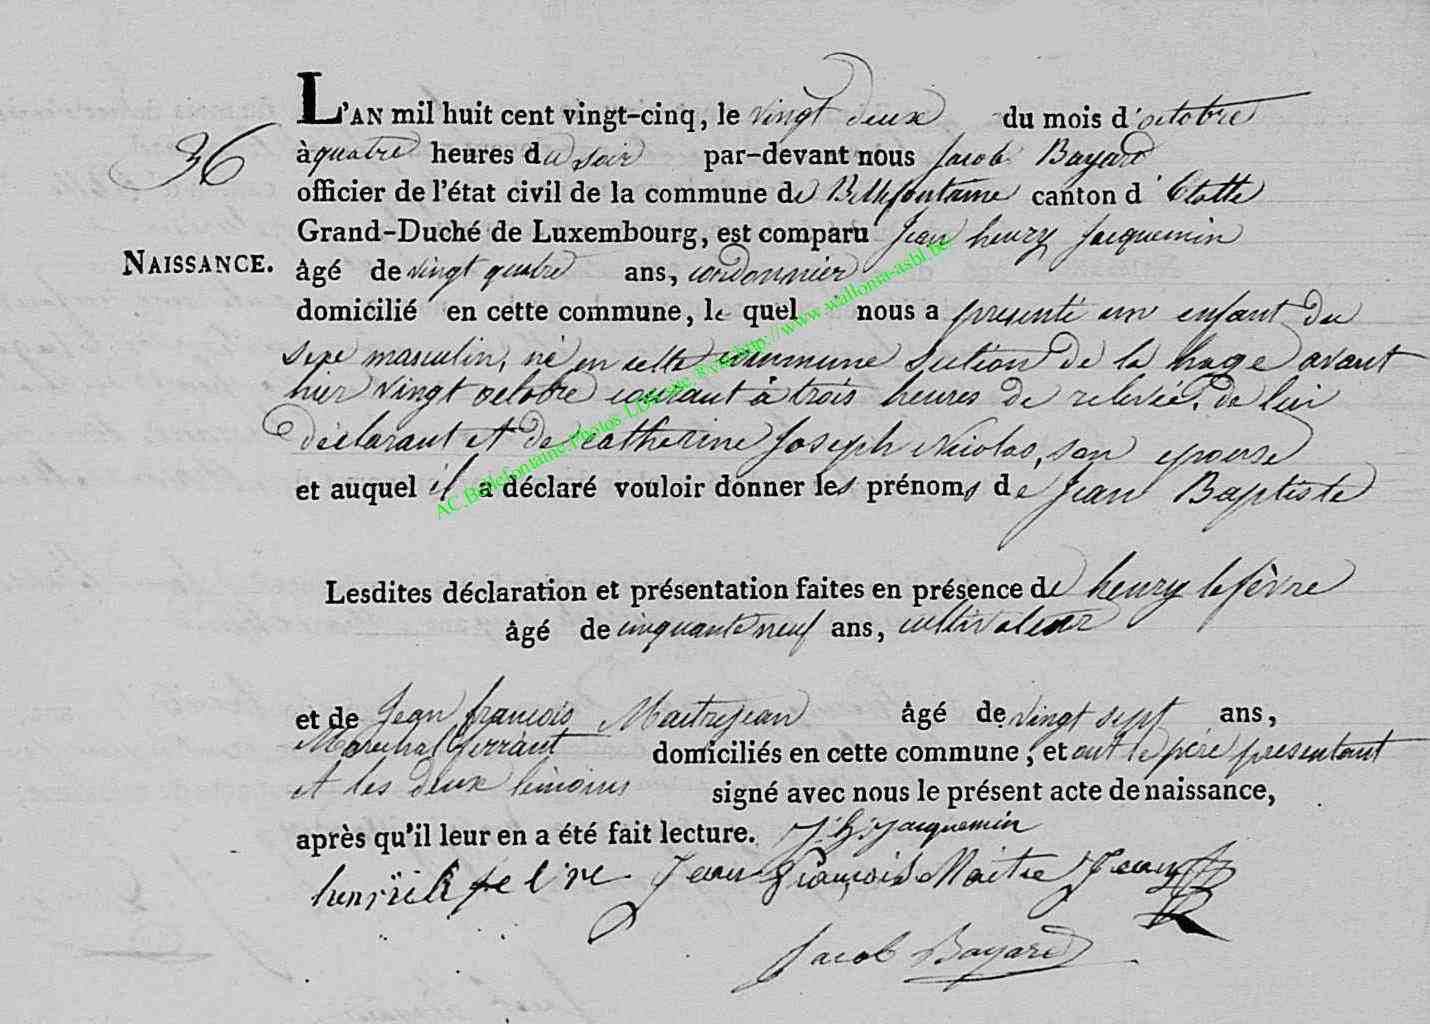 L'AN mil huit cent vingt-cinq, le vingt deux du mois d'octobre
36
à quatre heures du soir par-devant nous Jacob Bayard
officier de l'état civil de la commune de Bellefontaine canton d'Etalle
Grand-Duché de Luxembourg, est comparu Jean henry Jacquemin
NAISSANCE.
âgé de vingt quatre ans, cordonnier
domicilié en cette commune, le quel nous a presenté un enfant du
sexe masculin, né en cette commune section de la hage avant
hier vingt octobre courant à trois heures de relevée, de lui
déclarant et de catherine Joseph Nicolas, son epouse
et auquel il a déclaré vouloir donner les prénoms de Jean Baptiste
AC.Bellefontaine.Photos-LDM-site R.v.s:http://www.wallonia-asbl.be
Lesdites déclaration et présentation faites en présence de henry lefèvre
âgé de cinquante neuf ans, cultivateur
et de Jean françois Maitrejean âgé de vingt sept ans,
Marechal ferrant domiciliés en cette commune, et ont le père presentant
et les deux temoins signé avec nous le présent acte de naissance,
après qu'il leur en a été fait lecture. J. h. jacquemin
Jean François Maitre Jean
Jacob Bayard